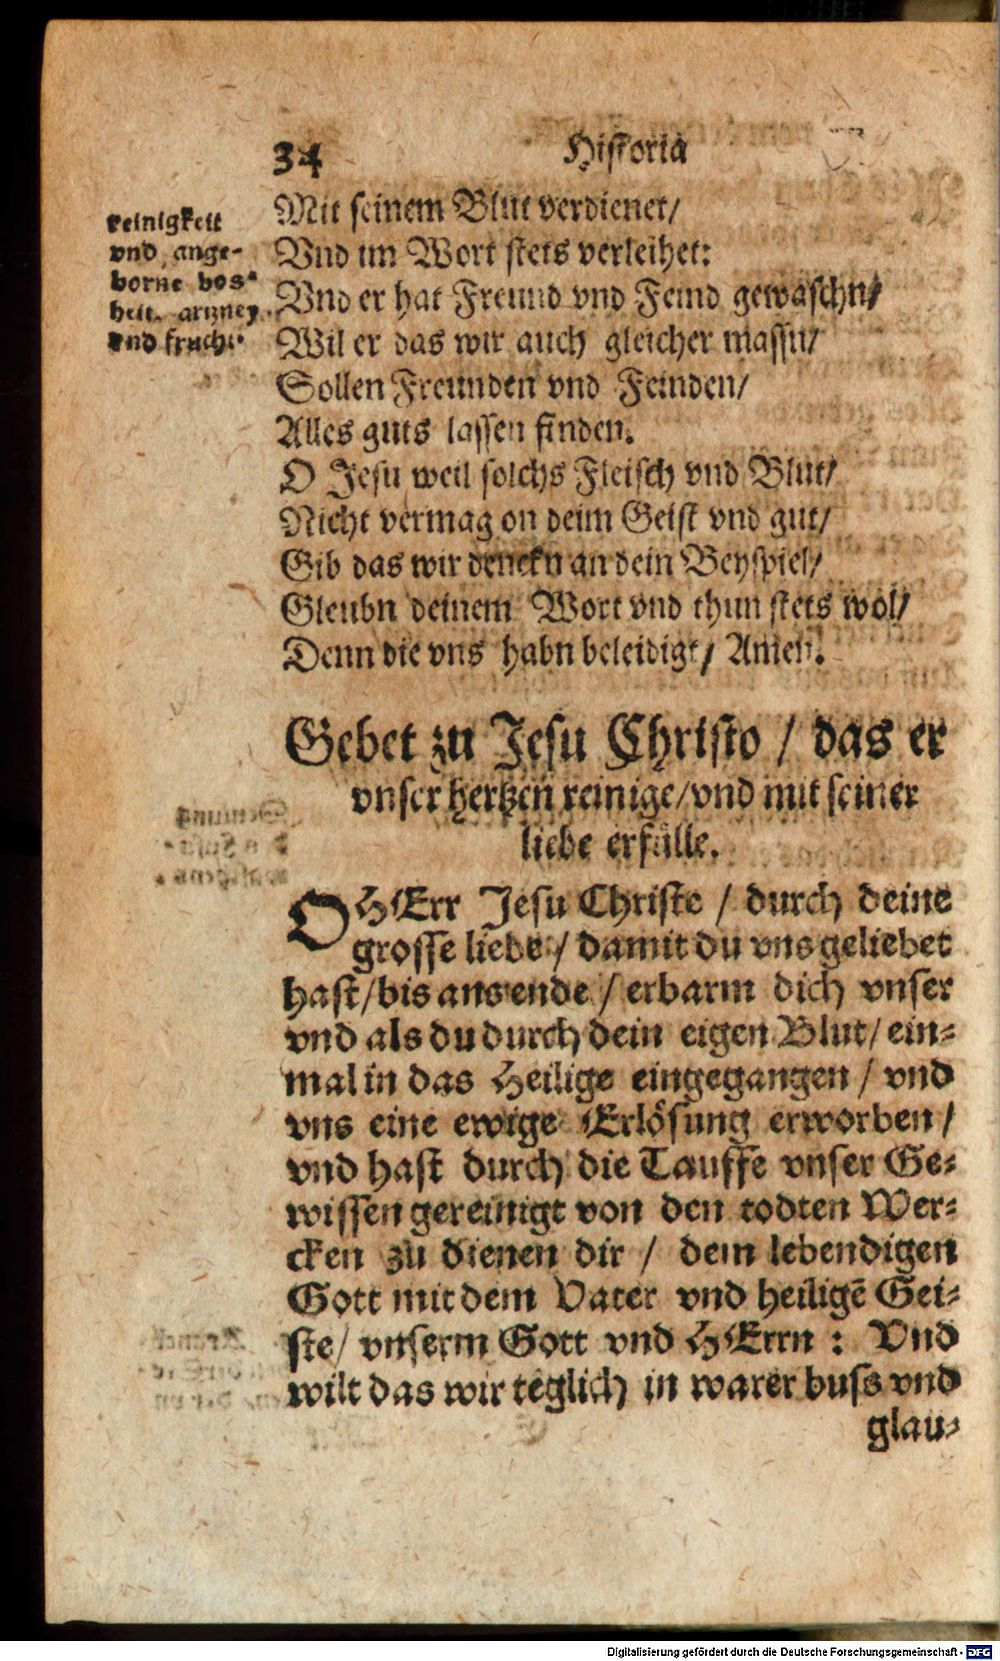 34 Historia
reinigkeit
vnd ange-
borne bos-
heit. artzney
vnd frucht.
Mit seinem Blut verdienet/
Vnd im Wort stets verleihet:
Vnd er hat Freund vnd Feind gewaschn/
Wil er das wir auch gleicher massn/
Sollen Freunden vnd Feinden/
Alles guts lassen finden.
O Jesu weil solchs Fleisch vnd Blut/
Nicht vermag on deim Geist vnd gut/
Gib das wir denckn an dein Beyspiel/
Gleubn deinem Wort vnd thun stets wol/
Denn die vns habn beleidigt/ Amen.
Gebet zu Jesu Christo / das er
vnser hertzen reinige/vnd mit seiner
liebe erfülle.
O HErr Jesu Christe / durch deine
grosse liebe / damit du vns geliebet
hast/bis ans ende / erbarm dich vnser
vnd als du durch dein eigen Blut/ ein-
mal in das Heilige eingegangen / vnd
vns eine ewige Erlösung erworben /
vnd hast durch die Tauffe vnser Ge-
wissen gereinigt von den todten Wer-
cken zu dienen dir / dem lebendigen
Gott mit dem Vater vnd heiligẽ Gei-
ste/ vnserm Gott vnd HErrn : Vnd
wilt das wir teglich in warer buss vnd
glau-
Digitalisierung gefördert durch die Deutsche Forschungsgemeinschaft - DFG